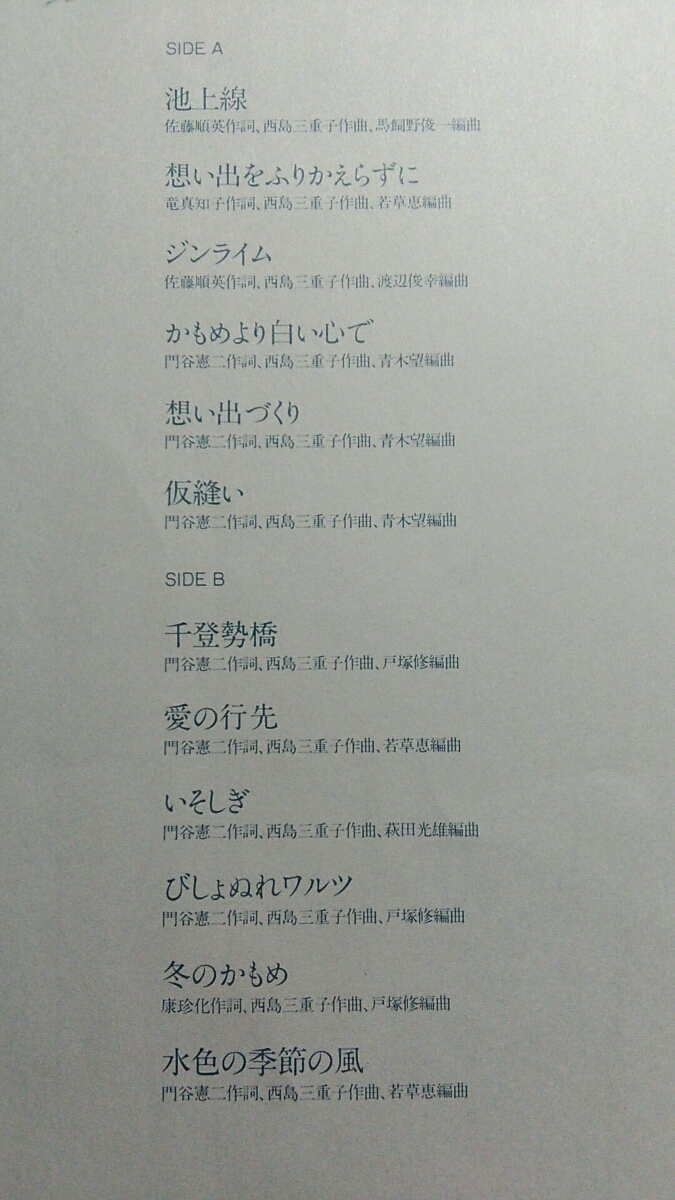 SIDE A
池上線
佐藤順英作詞、西島三重子作曲、馬飼野俊一編曲
想い出をふりかえらずに
竜真知子作詞、西島三重子作曲、若草恵編曲
ジンライム
佐藤順英作詞、西島三重子作曲、渡辺俊幸編曲
かもめより白い心で
門谷憲二作詞、西島三重子作曲、青木望編曲
想い出づくり
門谷憲二作詞、西島三重子作曲、青木望編曲
仮縫い
門谷憲二作詞、西島三重子作曲、青木望編曲
SIDE B
千登勢橋
門谷憲二作詞、西島三重子作曲、戸塚修編曲
愛の行先
門谷憲二作詞、西島三重子作曲、若草恵編曲
いそしぎ
門谷憲二作詞、西島三重子作曲、萩田光雄編曲
びしょぬれワルツ
門谷憲二作詞、西島三重子作曲、戸塚修編曲
冬のかもめ
康珍化作詞、西島三重子作曲、戸塚修編曲
水色の季節の風
門谷憲二作詞、西島三重子作曲、若草恵編曲